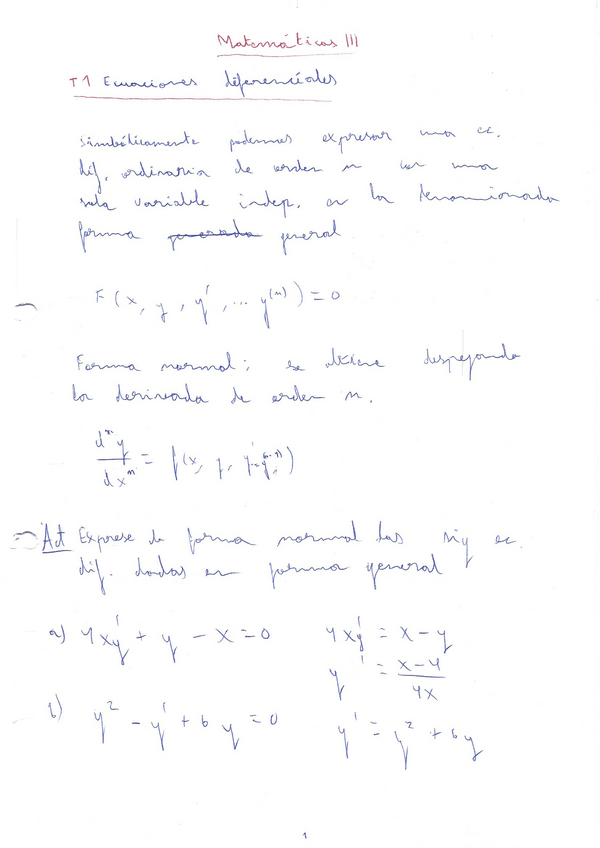 Matemáticas III
T1 Ecuaciones diferenciales
simbólicamente podemos expresar una ec.
dif. ordinaria de orden n con una
sola variable indep. en la denominada
forma general
F(x, y, y', ... y^(n)) = 0
Forma normal: se obtiene despejando
la derivada de orden n.
d^n y / dx^n = f(x, y, y', ... y^(n-1))
Act Exprese de forma normal las sig ec.
dif. dadas en forma general
a) 4xy' + y - x = 0 4xy' = x - y
y' = x-y / 4x
b) y^2 - y' + 6y = 0 y' = y^2 + 6y
1